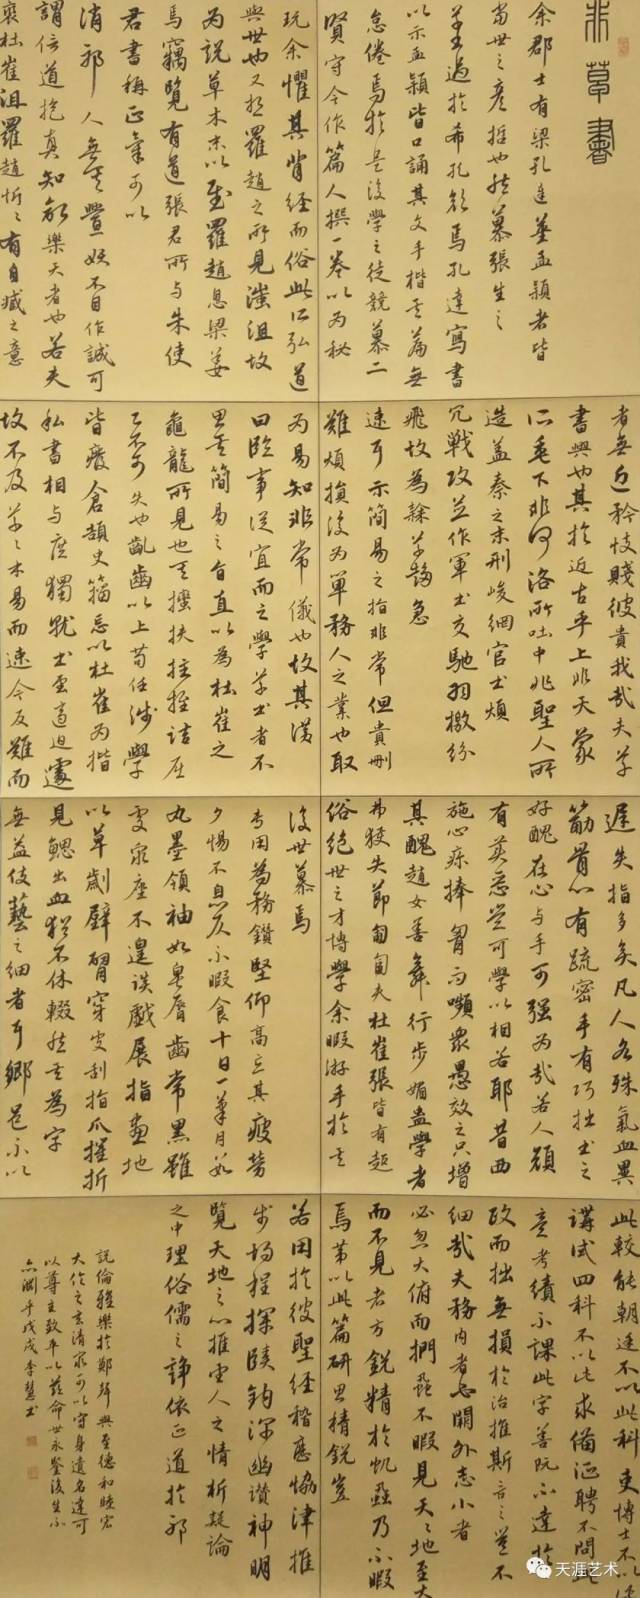 非草書
余郡士有梁孔達姜孟穎者皆
當世之彥哲也然慕張生之
草過於希孔顏焉孔達寫書
以示孟穎皆口誦其文手楷其篇無
怠倦焉於是後學之徒競慕二
賢守令作篇人撰一卷以為秘
玩余懼其背經而俗此所弘道
興世也又想羅趙之所見嗤沮故
為說草本末以慰羅趙息梁姜
焉竊覽有道張君所與朱使
君書稱正氣可以
消邪人無其釁妖不自作誠可
謂信道抱真知命樂天者也若夫
褒杜崔沮羅趙忻々有自臧之意
者無近矜忮賤彼貴我哉夫草
書興也其於近古乎上非天象
所垂下非河洛所吐中非聖人所
造蓋秦之末刑峻網官書煩
冗戰攻並作軍書交馳羽檄紛
飛故為隸草趨急
速耳示簡易之指非常但貴刪
難煩損復為單務人之業也取
為易知非常儀也故其讚
曰臨事從宜而之學草書者不
思其簡易之旨直以為杜崔之
龜龍所見也其扶拄挃詰屈
乙不可失也齓齒以上苟任涉學
皆廢倉頡史籀忌以杜崔為楷
私書相與庶獨就書云適迫遽
故不及草々本易而速今反難而
遲失指多矣凡人各殊氣血異
筋骨心有疏密手有巧拙書之
好醜在心與手可强為哉若人顏
有美惡豈可學以相若耶昔西
施心疢捧胷而嚬衆愚效之只增
其醜趙女善舞行步媚蠱學者
弗獲失節匍匐夫杜崔張皆有超
俗絕世之才博學余暇游手於其
後世慕焉
專用為務鑽堅仰高忘其疲勞
夕惕不息仄不暇食十日一筆月數
丸墨領袖如皂脣齒常黑雖
處衆座不遑談戲展指畫地
以草劌壁臂穿皮刮指爪摧折
見鰓出血猶不休輟然其為字
無益伎藝之細者耳鄉邑不以
此較能朝廷不以此科吏博士不以此
講試四科不以此求備征聘不問此
意考績不課此字善既不達於
政而拙無損於治推斯言之豈不
細哉夫務內者必闕外志小者
必忽大俯而捫蝨不暇見天々地至大
而不見者方銳精於蟣蝨乃不暇
焉第以此篇研思精銳豈
若用於彼聖經稽歷協律推
步期程探賾鉤深幽讚神明
覽天地之心推聖人之情析疑論
之中理俗儒之諍依正道於邪
說儕雅樂於鄭聲興至德和睦宏
大倫之玄清窮可以守身遺名達可
以尊主致平以茲命世永鑒後生不
亦淵乎戊戌李慧書
天涯艺术